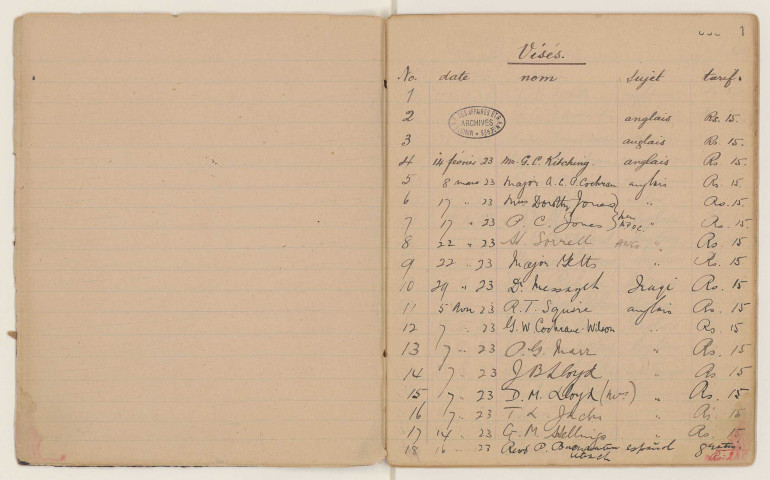 1
Visés.
No. date nom sujet tarif.
1
2 anglais Rs. 15.
ARCHIVES
3 anglais Rs. 15.
4 14 février 23 Mr. G. C. Kitching. anglais Rs 15.
5 8 mars 23 Major A. C. P. Cochran anglais Rs 15.
6 17 " 23 Miss Dorothy Jones) " Rs. 15.
7 17 " 23 P. C. Jones " Rs. 15
8 22 " 23 Sorrell " Rs 15
9 22 " 23 Major " Rs. 15
10 29 " 23 Dr. Messayeh Iraqi Rs 15
11 5 23 R. T. Squire anglais Rs. 15
12 7 " 23 G. W. Cochrane-Wilson " Rs. 15
13 7 " 23 O. G. Marr " Rs. 15
14 7 " 23 J B Lloyd " Rs. 15
15 7 " 23 D. M. Lloyd (Mrs) " Rs. 15
16 7 " 23 T. L. " Rs 15
17 14 " 23 G. M. " Rs. 15
18 16 " 23 Revd P. español gratis